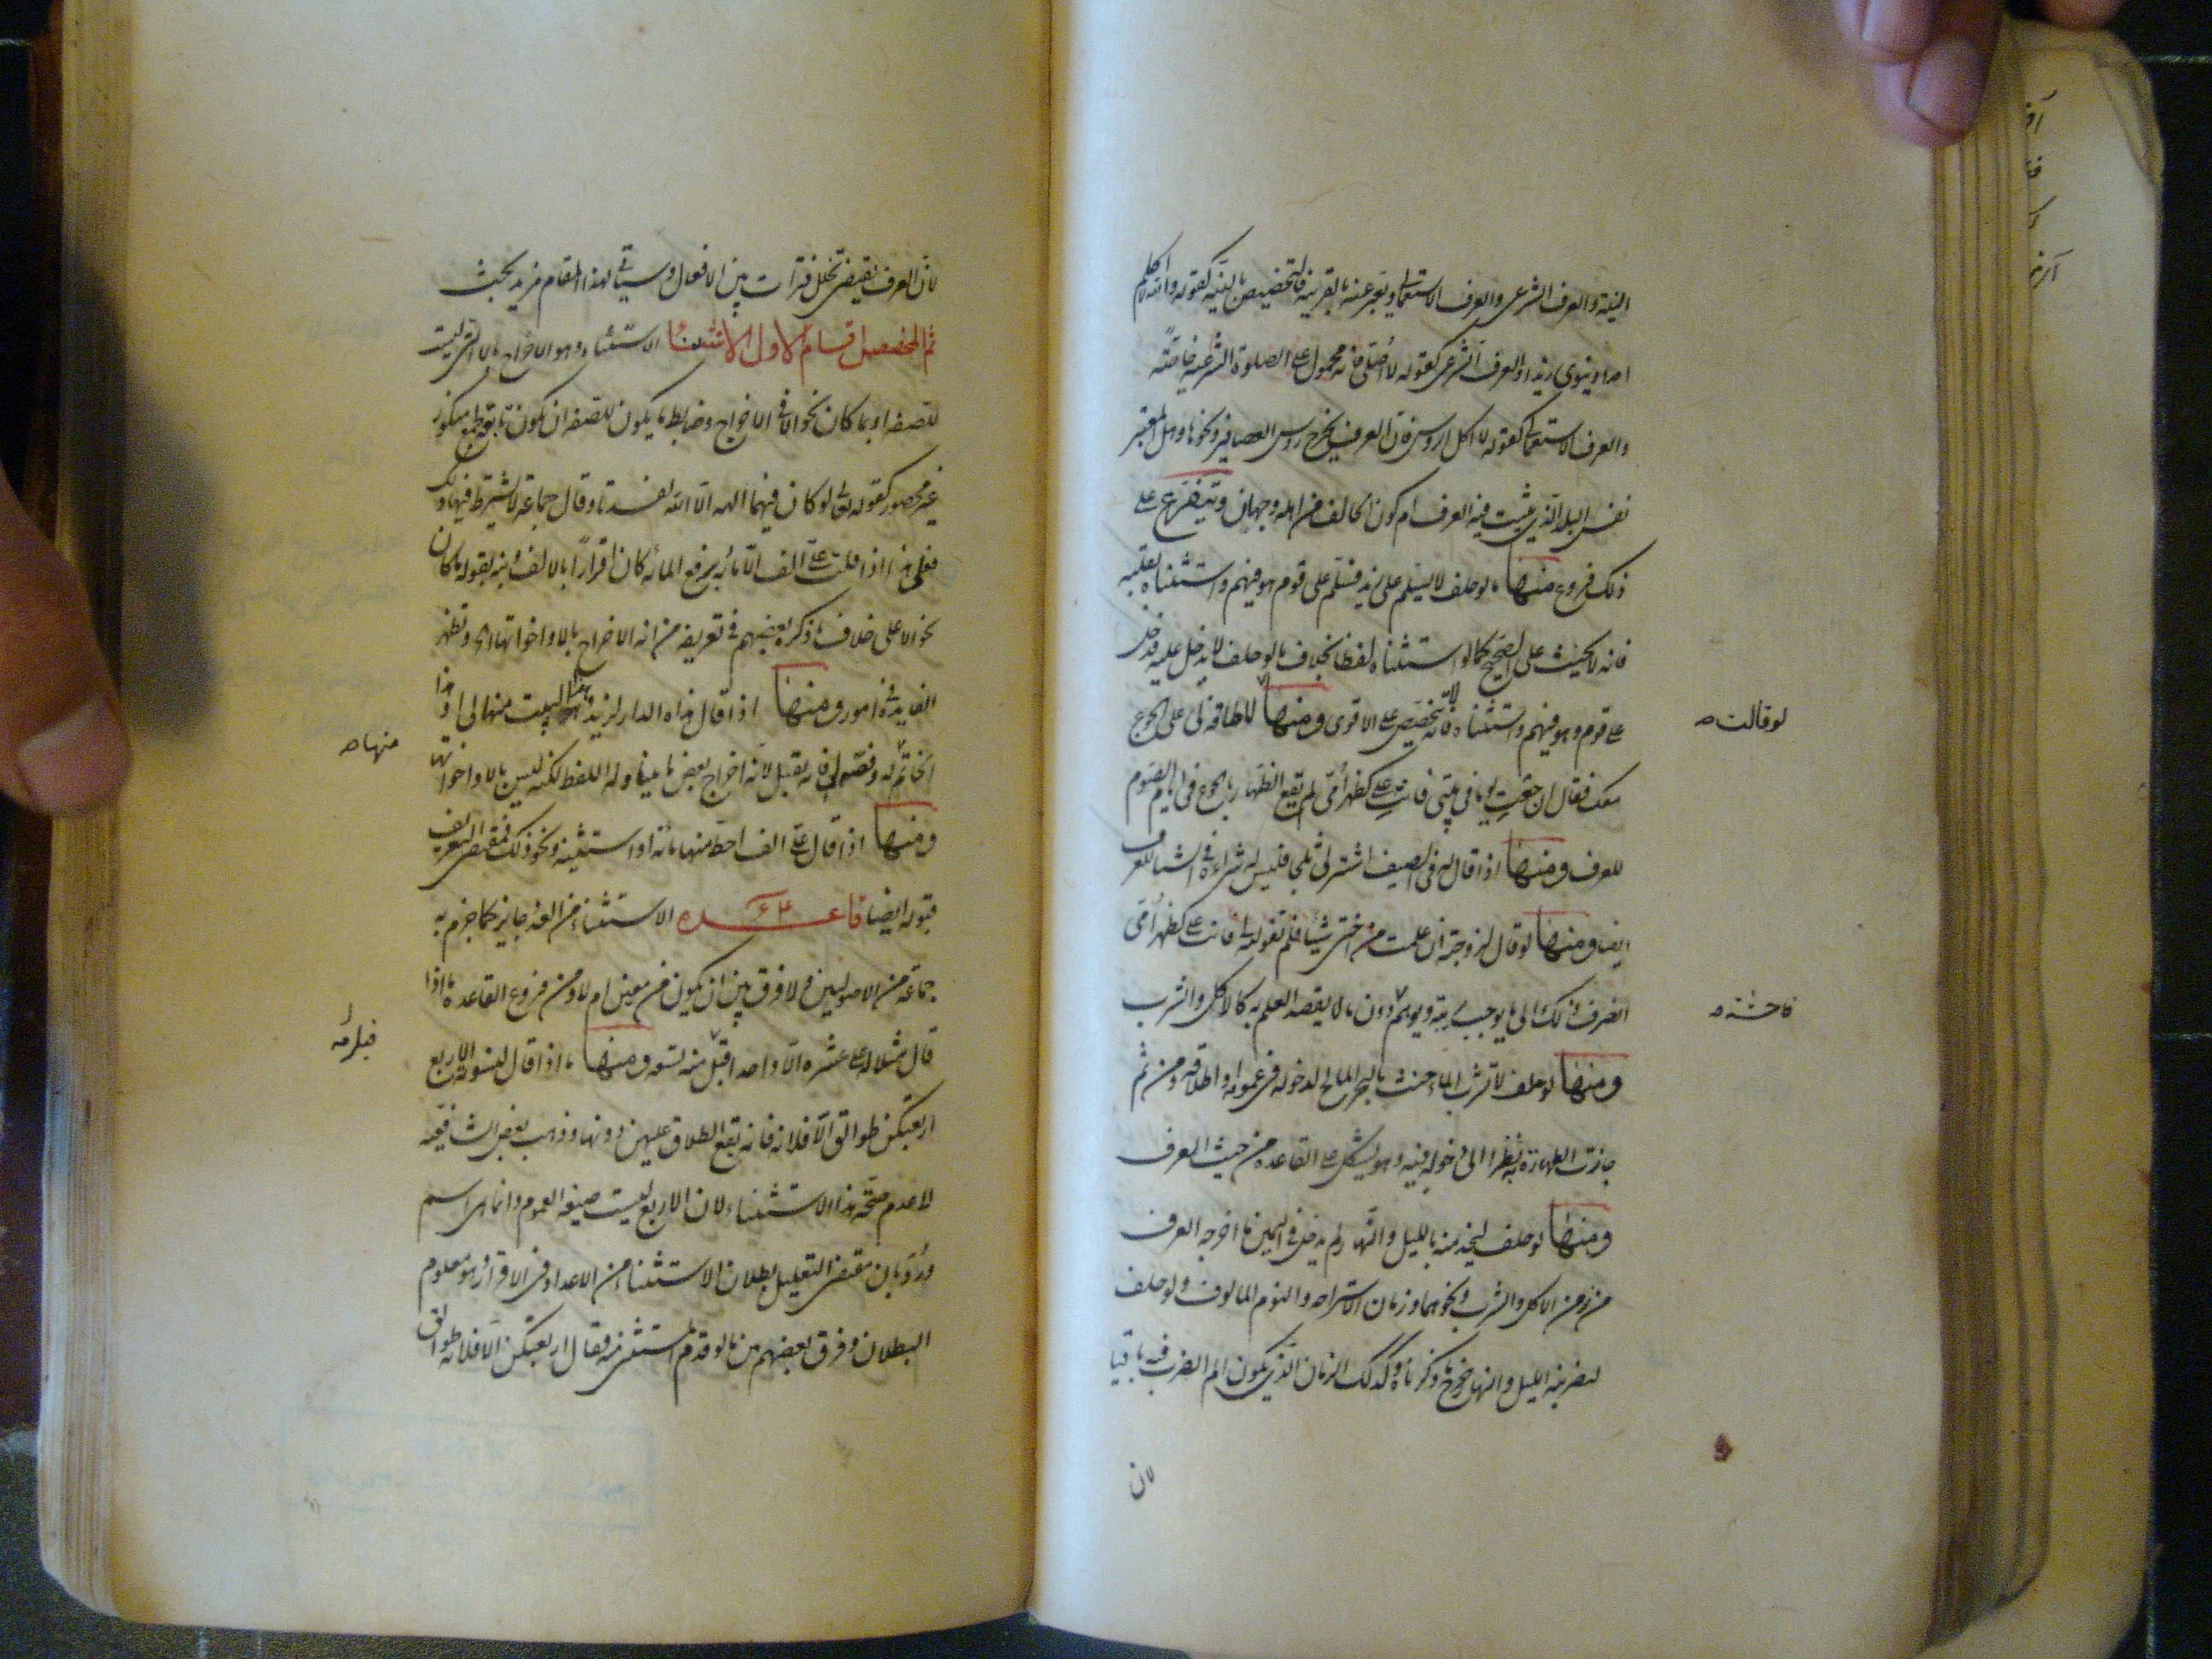 النية والعرف الشرعي والعرف الاستعمالي ويعبر عنه بالقرينة فالتخصيص بالنية كقوله والله لا اكلم
احدا وينوي زيدا والعرف الشرعي كقوله لا اصلي فانه محمول على الصلوة الشرعية خاصة
والعرف الاستعمالي كقوله لا آكل الرؤس فان العرف يخرج رؤس العصافير ونحوها وهل المعتبر
نفس البلد الذي يثبت فيه العرف ام كون الحالف من اهله وجهان ويتفرع على
ذلك فروع منها ما لو حلف لا يسلم على زيد فسلم على قوم هو فيهم واستثناه بقلبه
فانه لا يحنث على الصحيح كما لو استثناه لفظا بخلاف ما لو حلف لا يدخل عليه فدخل
على قوم وهو فيهم واستثناه فانه لا يتخصص على الاقوى ومنها لا طاقة لي على الجوع
معك فقال ان جعت يوما في بيتي فانت علي كظهر امي لم يقع الظهار بالجوع في ايام الصوم
للعرف ومنها اذا قال في الصيف اشتر لي ثلجا فليس له شراءه في الشتاء للعرف
ايضا ومنها لو قال لزوجته ان علمت من اختي شيئا فلم تقوليه لي فانت علي كظهر امي
انصرف ذلك الى ما يوجب ريبة ويوهم دون ما لا يقصد العلم به كالاكل والشرب
ومنها لو حلف لا شرب الماء حنث بالبحر المالح لدخوله في عمومه او اطلاقه ومن ثم
جازت الطهارة به نظرا الى دخوله فيه وهو يشكل على القاعدة من حيث العرف
ومنها لو حلف ليخدمنه بالليل والنهار لم يدخل في اليمين ما اخرجه العرف
من زمن الاكل والشرب ونحوهما وزمان الاستراحة والنوم المالوف ولو حلف
ليضربنه الليل والنهار خرج ما ذكرناه وكذلك الزمان الذي يكون الم الضرب فيه باقيا
لان
لو قالت صح
فاحشة صح
لان العرف يقتضي تخلل فترات بين الافعال وسياتي لهذا المقام مزيد بحث
ثم المخصص اقسام الاول الاستثناء الاستثناء وهو الاخراج بالا التي ليست
للصفة او بما كان نحو الا في الاخراج وضابط ما يكون للصفة ان يكون تابعة لجمع منكور
غير محصور كقوله تعالى لو كان فيهما الهة الا الله لفسدتا وقال جماعة لا يشترط فيها ذلك
فعلى هذا اذا قلت له علي الف الا مائة برفع المائة كان اقرارا بالالف ونبه بقوله ما كان
نحو الا على خلاف ما ذكره بعضهم في تعريفه من انه الاخراج بالا واخواتها وتظهر
الفايدة في امور ومنها اذا قال هذه الدار لزيد وهذا البيت منها لي او هذا
الخاتم له وفصه لي فانه يقبل لانه اخراج بعض ما يتناوله اللفظ لكنه ليس بالا واخواتها
ومنها اذا قال له علي الف احط منها مائة او استثنيه ونحو ذلك فمقتضى التعريف
قبوله ايضا قاعدة ٦٤ الاستثناء من العدد جايز كما جزم به
جماعة من الاصوليين ولا فرق بين ان يكون من معين ام لا ومن فروع القاعدة ما اذا
قال مثلا له علي عشرة الا واحدا قبل منه تسعة ومنها ما اذا قال لنسوته الاربع
اربعتكن طوالق الا فلانة فانه يقع الطلاق عليهن دونها وذهب بعض الشافعية
لا عدم صحة هذا الاستثناء لان الاربع ليست صيغة العموم وانما هي اسم
ورد بان مقتضى التعليل بطلان الاستثناء من الاعداد في الاقرار وهو معلوم
البطلان وفرق بعضهم بين ما لو قدم المستثنى منه فقال اربعتكن الا فلانة طوالق
منها صح
فيلزمه